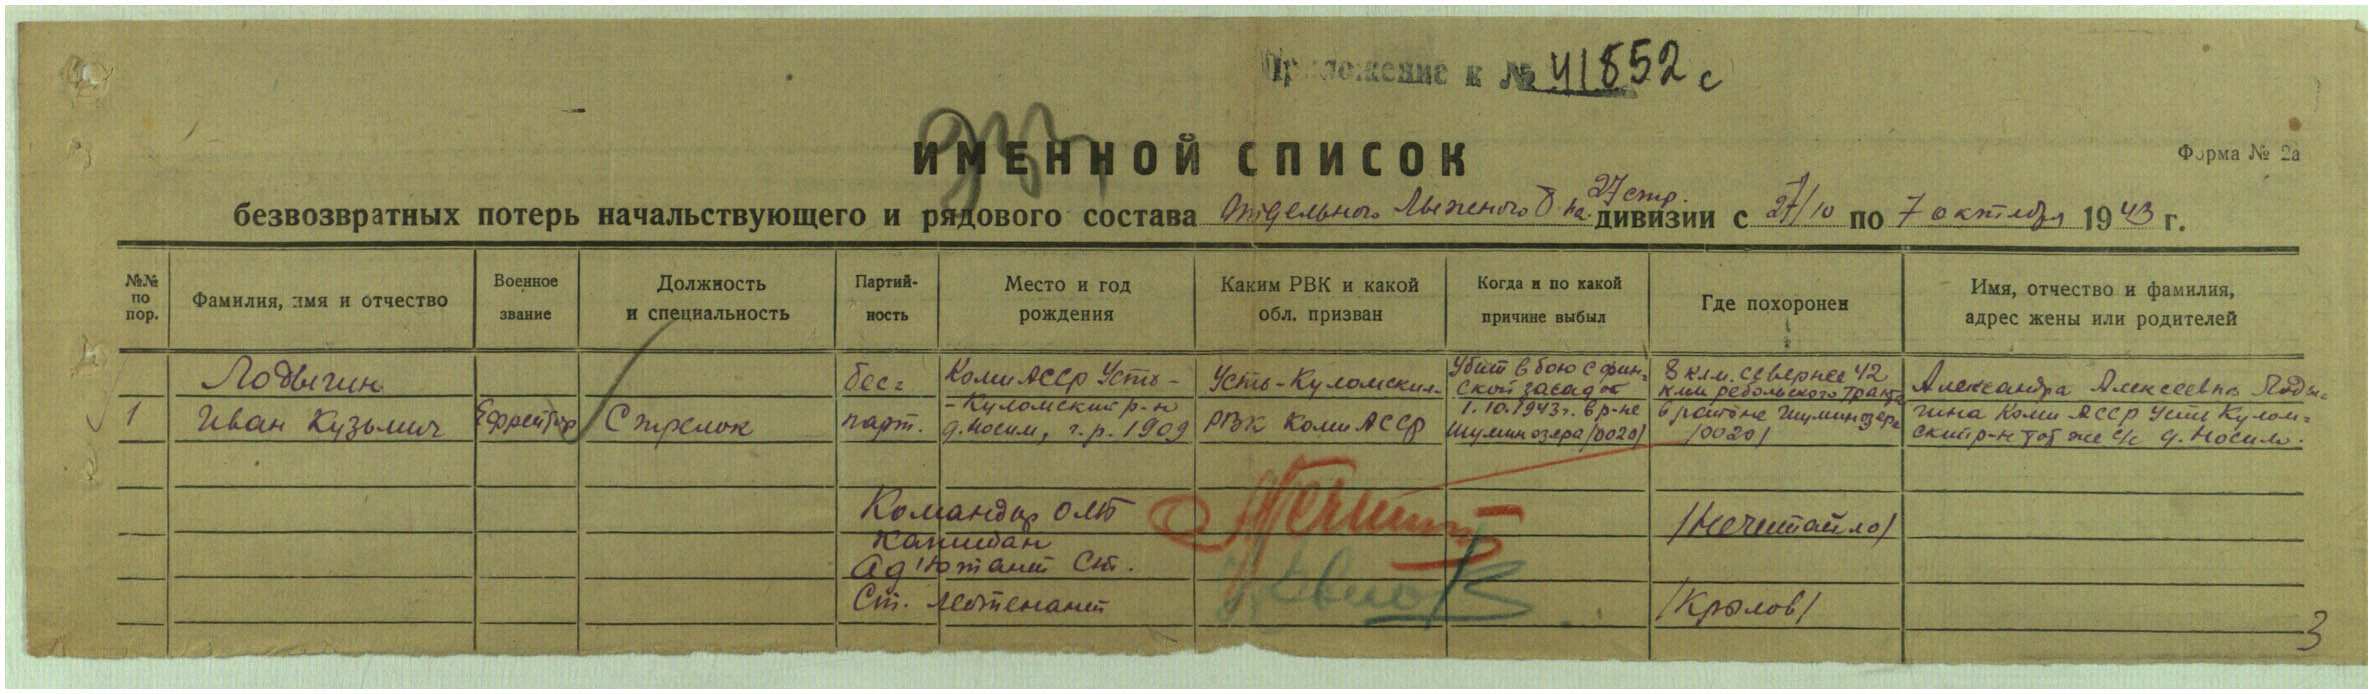 Приложение к № 41852 с
ИМЕННОЙ СПИСОК
Форма № 2а
безвозвратных потерь начальствующего и рядового состава Отдельного Лыжного б-на 27 стр. дивизии с 27/10 по 7 октября 1943 г.
№№ по пор.
Фамилия, имя и отчество
Военное звание
Должность и специальность
Партий-
ность
Место и год рождения
Каким РВК и какой обл. призван
Когда и по какой причине выбыл
Где похоронен
Имя, отчество и фамилия, адрес жены или родителей
1
Лодыгин
Иван Кузьмич
Ефрейтор
Стрелок
бес=
парт.
Коми АССР Усть-
-Куломский р-н
д. Носим, г.р. 1909
Усть-Куломским
РВК Коми АССР
Убит в бою с фин-
ской засадой
1.10.1943г. в р-не
Шумиозера /0020/
8 клм. севернее 42
клм ребольского тракта
в районе Шумиозера
/0020/
Александра Алексеевна Лоды=
гина Коми АССР Усть Кулом=
ский р-н тот же с/с д.
Командир ОЛБ
Капитан
/Нечитайло/
Адъютант Ст.
Ст. лейтенант
/Крылов/
3